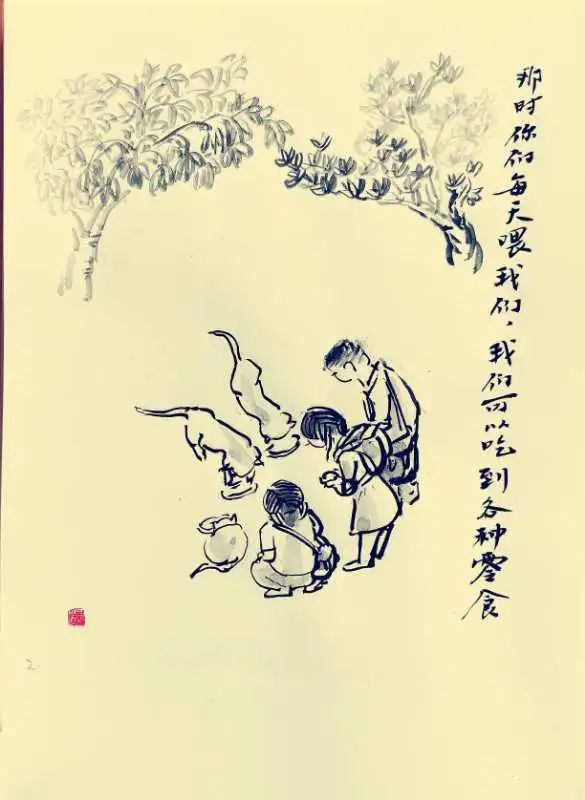 那时你们每天喂我们，我们可以吃到各种零食
2